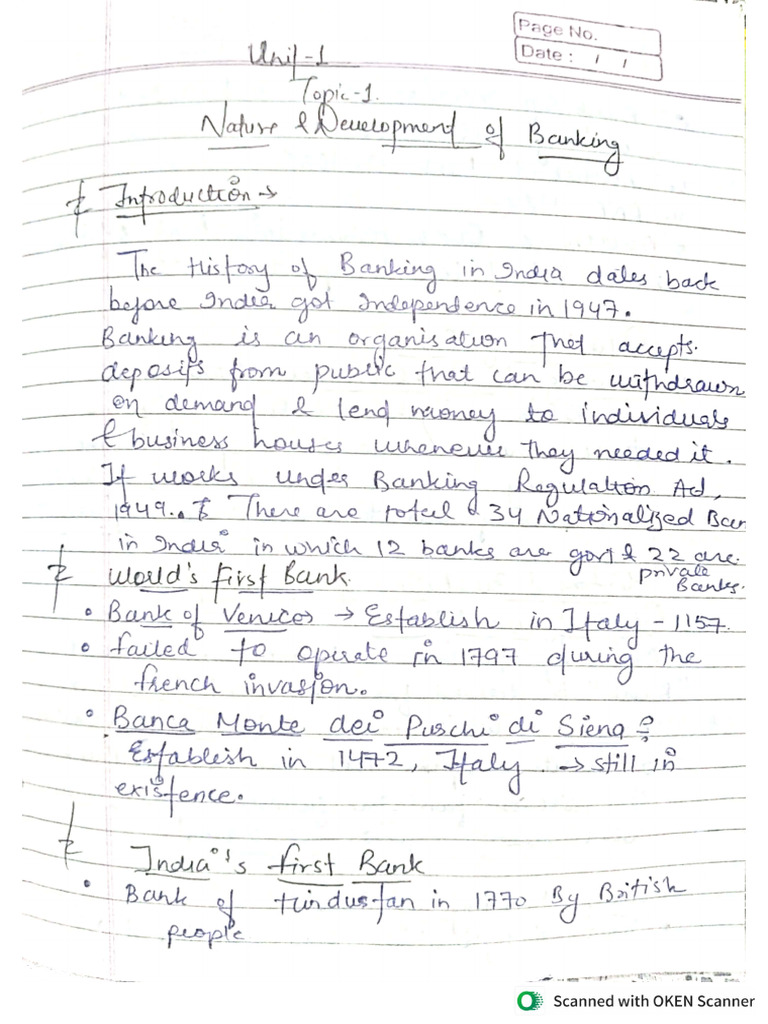 Page No.
Date : / /
Unit-1
Topic-1.
Nature & Development of Banking
Introduction →
The History of Banking in India dates back
before India got Independence in 1947.
Banking is an organisation that accepts
deposits from public that can be withdrawn
on demand & lend money to individuals
& business houses whenever they needed it.
It works under Banking Regulation Act,
1949.. There are total 34 Nationalized Ban
in India in which 12 banks are govt & 22 are
private
Banks.
World's First Bank.
• Bank of Venices → Establish in Italy - 1157.
• failed to operate in 1797 during the
french invasion.
• Banca Monte dei Puschi di Siena :
Establish in 1472, Italy → still in
existence.
India's first Bank
• Bank of Hindustan in 1770 By British
people
Scanned with OKEN Scanner